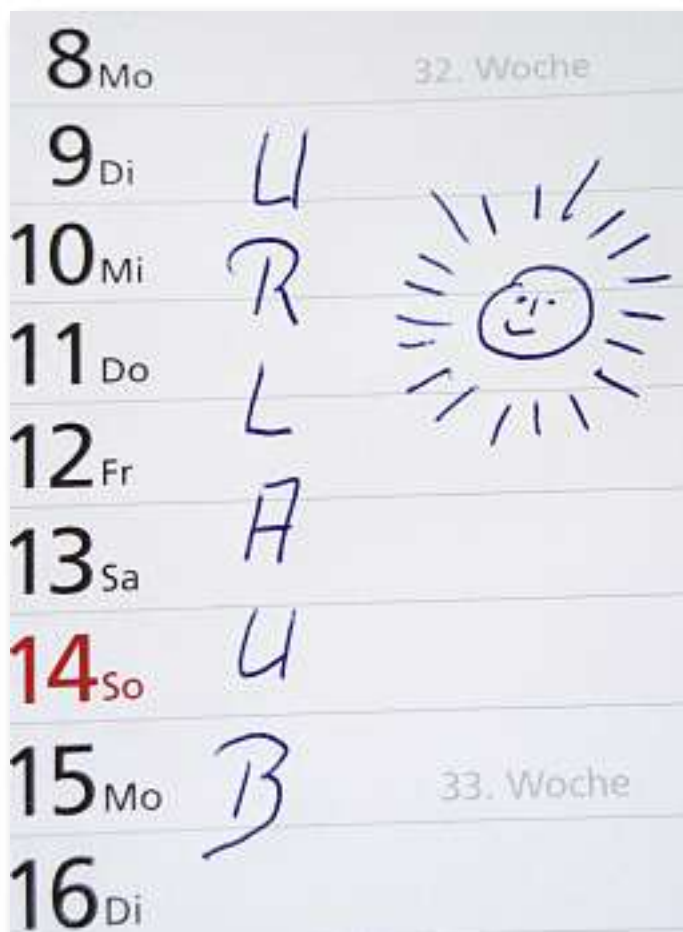 8 Mo 32. Woche
9 Di U
10 Mi R
11 Do L
12 Fr
A
13 Sa
14 So U
15 Mo B 33. Woche
16 Di